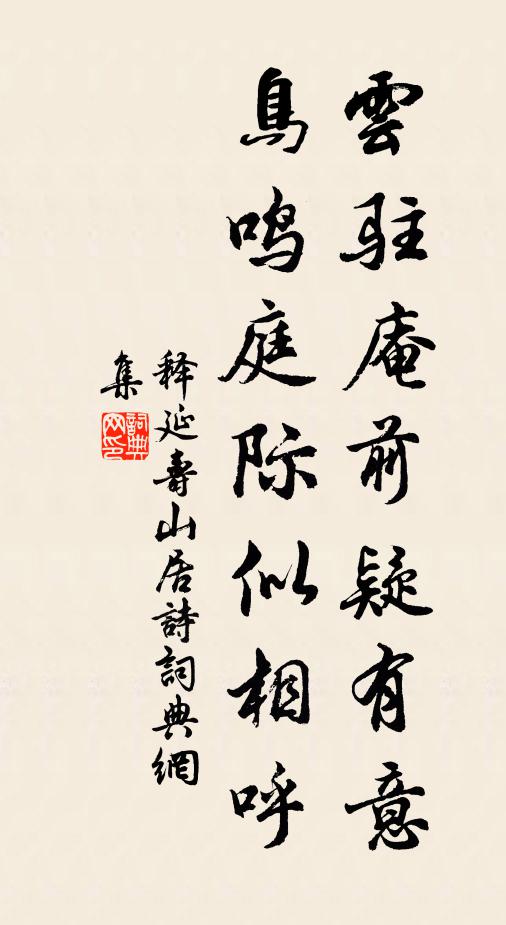 雲駐庵前疑有意
鳥鸣庭际似相呼
释延壽山居詩詞典網
集
詞典
网印